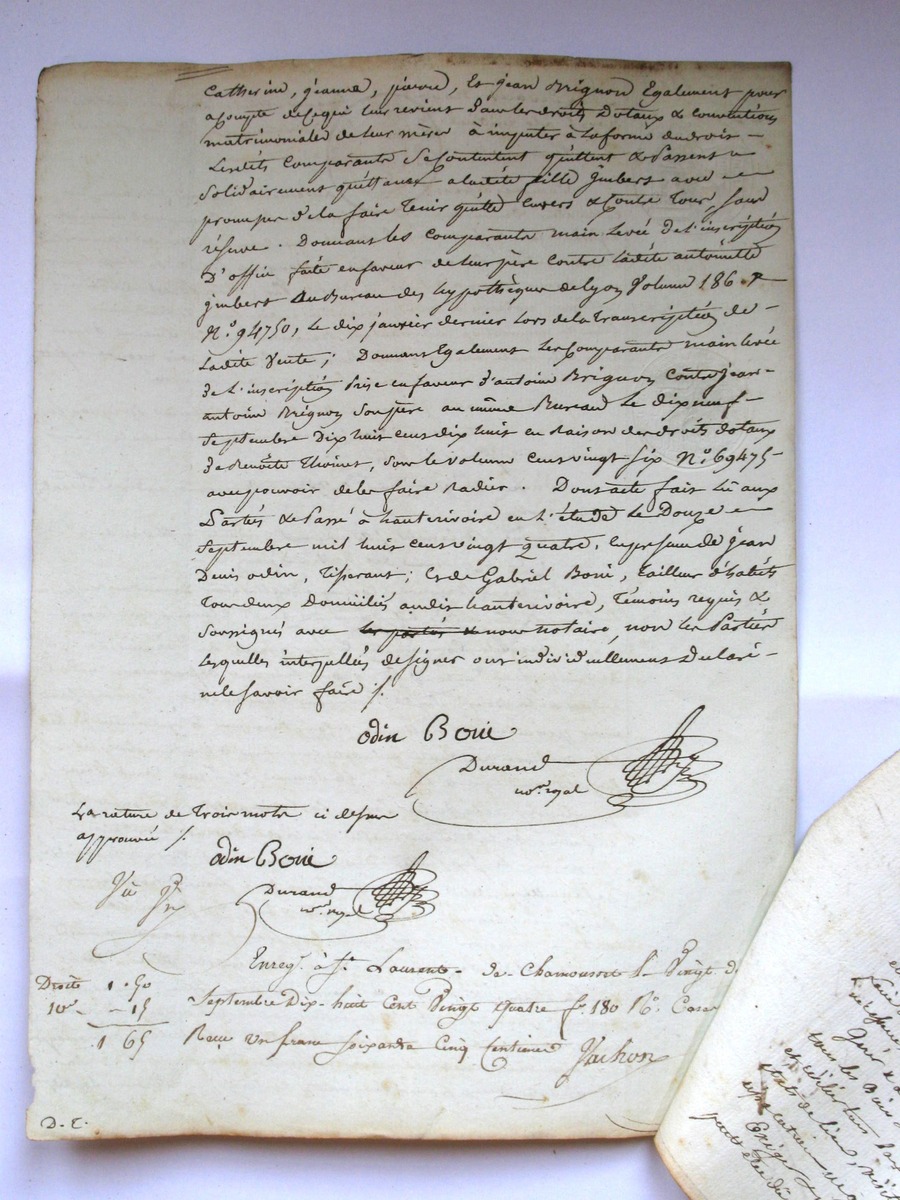 Catherine, jeanne, pierre, et jean Brignon Egalement pour
acompte de ce qui leur revient dans les droits Dotaux & conventions
matrimoniales de leur mère à imputer à la forme du droit —
Lesdits Comparants Se Contentent quittent & Passent
Solidairement quittance a ladite fille jmbert avec
promesse de la faire Tenir quitte Envers & Contre Tous, sans
réserve. Donnant les comparants main levée de l'inscription
D'office faite en faveur de leur père contre ladite antoinette
jmbert au Bureau des hypothèques de Lyon Volume 186
N.° 94750, Le dix janvier dernier Lors de la Transcription de —
Ladite Vente; Donnant Egalement Les Comparants main levée
de L'inscription Prise en faveur d'antoine Brignon Contre jean —
antoine Brignon Son père au même Bureau Le dix neuf —
Septembre Dix huit cent dix huit en Raison des droits dotaux
de Benoite Thoinet, sous le volume cent vingt Six N.° 69475 —
avec pouvoir de les faire Radier. Dont acte fait Lû aux
Parties & Passé à hauterivoire en L'étude Le Douze
Septembre mil huit cent vingt quatre, en présence de Jean
Denis odin, Tisserant; Et de Gabriel Boni, Tailleur d'habits
Tous deux Domiciliés audit hauterivoire, Témoins requis &
Soussignés avec les parties & nous notaire, non les Parties
Lesquelles interpellées de signer ont individuellement Déclaré —
ne le savoir faire /.
odin Boni
Durand
no.re royal
La rature de Trois mots ci dessus
approuvée /.
odin Boni
Durand
no.re royal
Enreg. à St. Laurent - de - Chamousset le Vingt
Droits 1 . 50
10e - - 15
1 65
Septembre Dix-huit Cent Vingt quatre f.° 180 R.° Case
Reçu Un franc soixante Cinq Centimes Vachon
D. E.